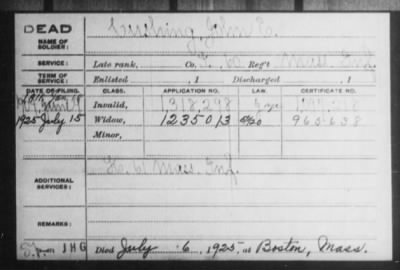 DEAD
NAME OF SOLDIER: Cushing, John E.
SERVICE: Late rank, Co. 60 Reg't Mass. Inf.
TERM OF SERVICE: Enlisted , 1 Discharged , 1
DATE OF FILING. CLASS. APPLICATION NO. LAW. CERTIFICATE NO.
Invalid, 1,318,298
1925 July 15 Widow, 1235013 5/1/20 965638
Minor,
ADDITIONAL SERVICES: Mass. Inf.
REMARKS:
JHG Died July 6, 1925, at Boston, Mass.